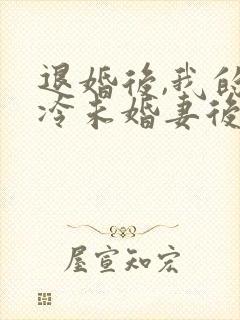 退婚後,我的
冷未婚妻後
屋宣知宏